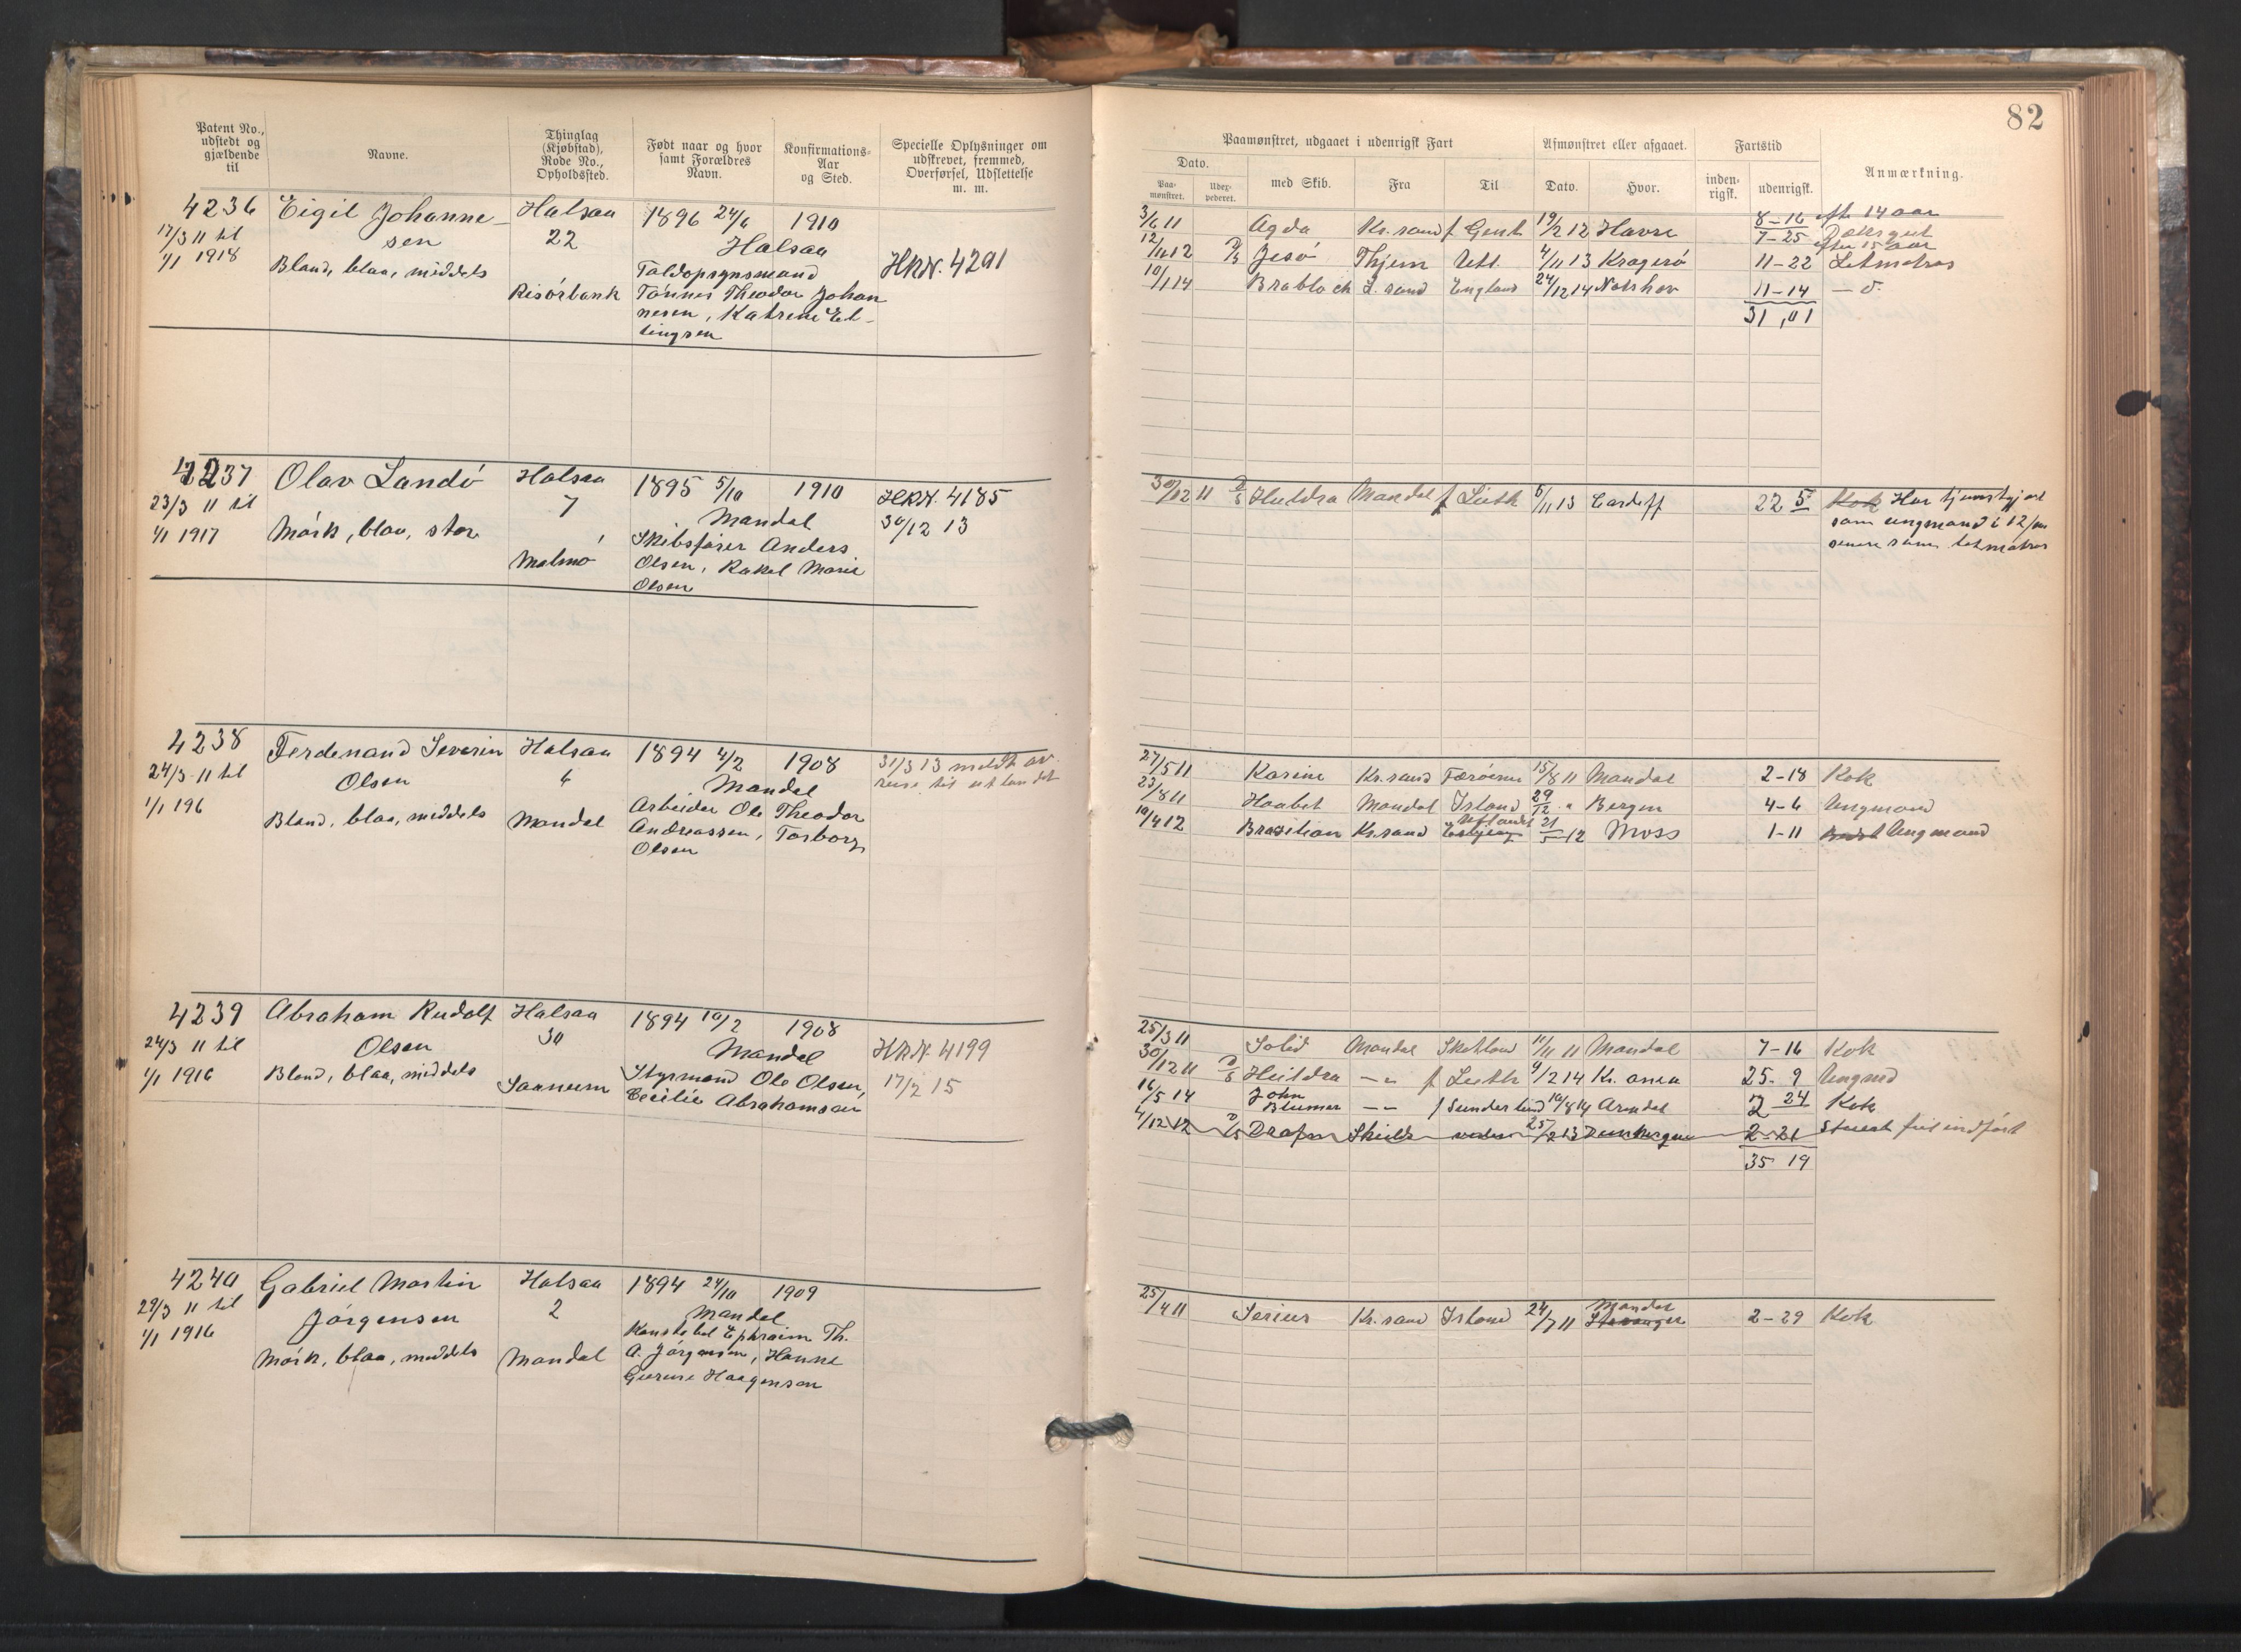 82
Patent No., udstedt og gjældende til
Navne.
Thinglag (Kjøbstad), Rode No., Opholdssted.
Født naar og hvor samt Forældres Navn.
Konfirmations-Aar og Sted.
Specielle Oplysninger om udskrevet, fremmed, Overførsel, Udslettelse m. m.
Paamønstret, udgaaet i udenrigsk Fart
Dato.
Paa-mønstret.
Uder-pederet.
med Skib.
Fra
Til
Afmønstret eller afgaaet.
Dato.
Hvor.
Fartstid
inden-rigsk.
udenrigsk.
Anmærkning.
4236 Eigil Johanne- Halsaa 1896 24/6 1910
17/3 11 til sen 22 Halsaa
1/1 1918 Blond, blaa, middels Toldopsynsmand HRN. 4291
Risörbank Tönnes Theodor Johan
nesen, Katrine El-
lingsen
3/6 11 Agda Kr.sand f Gent 19/2 12 Havre 8-16 eft. 14 aar
7-25 Dæksgut
efter 15 aar
12/11 12 D/S Jesö Thjem 4/11 13 Kragerö 11-22 Letmatros
10/1 14 sand England 24/12 14 11-14 — d.
31,01
4237 Olav Landö Halsaa 1895 5/10 1910 HRN. 4185
23/3 11 til 7 Mandal 30/12 13
1/1 1917 Mörk, blaa, stor Skibsförer Anders
Malmö Olsen, Rakel Marie
Olsen
30/12 11 D/S Huldra Mandal f Leith 5/11 13 Cardiff 22 5 Kok Har tjenstgjort
som ungmand i 12/m
senere som letmatros
4238 Ferdenand Severin Halsaa 1894 4/2 1908 31/3 13 meldt av
24/3 11 til Olsen 6 Mandal reise til utlandet
1/1 196 Blond, blaa, middels Mandal Arbeider Ole Theodor
Andreassen, Torborg
Olsen
27/5 11 Karine Kr.sand Færöerne 15/8 11 Mandal 2-18 Kok
23/8 11 Haabet Mandal Island 29/12 " Bergen 4-6 Ungmand
10/4 12 Brazilian Kr.sand 21/5 12 Moss 1-11 Ungmand
4239 Abraham Rudolf Halsaa 1894 10/2 1908
24/3 11 til Olsen 30 Mandal HRN. 4199
1/1 1916 Blond, blaa, middels Styrmand Ole Olsen, 17/2 15
Saanum Cecilie Abrahamsen
25/3 11 Solid Mandal 11 Mandal 7-16 Kok
30/12 11 D/S Huldra —"— f Leith 9/2 14 Kr. ania 25-9 Ungmd
16/5 14 John Blumer —"— f Sunderland 10/8 14 Arendal 2 24 Kok
4/12 12 D/S 25/2 13 2-21 feil indfört
35 19
4240 Gabriel Martin Halsaa 1894 24/10 1909
29/3 11 til Jörgensen 2 Mandal
1/1 1916 Konstabel Ephraim Th.
Mörk, blaa, middels Mandal A. Jörgensen, Hanne
Gurine Haagensen
25/4 11 Serius Kr.sand Island 24/7 11 Mandal Stavanger 2-29 Kok